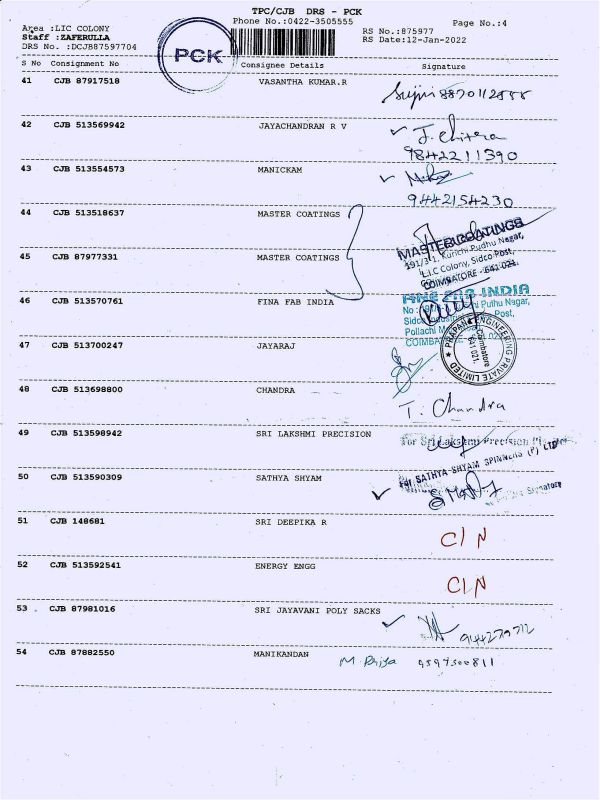 TPC/CJB DRS - PCK
Area :LIC COLONY
Phone No.:0422-3505555
Page No.:4
Staff :ZAFERULLA
RS No.:875977
DRS No. :DCJB87597704
PCK
RS Date:12-Jan-2022
S No Consignment No Consignee Details Signature
41 CJB 87917518 VASANTHA KUMAR.R
42 CJB 513569942 JAYACHANDRAN R V J. Chitra
9842211390
43 CJB 513554573 MANICKAM
9442154230
44 CJB 513518637 MASTER COATINGS
MASTER COATINGS
191/3-1, Kurichi Pudhu Nagar,
L.I.C Colony, Sidco Post,
COIMBATORE - 641 021.
45 CJB 87977331 MASTER COATINGS
46 CJB 513570761 FINA FAB INDIA
FINE FAB INDIA
No : Puthu Nagar,
Post,
Pollachi
PRAPAN ENGINEERING PRIVATE LIMITED
Coimbatore
641 021.
47 CJB 513700247 JAYARAJ
48 CJB 513698800 CHANDRA T. Chandra
49 CJB 513598942 SRI LAKSHMI PRECISION
For Sri Lakshmi Precision
50 CJB 513590309 SATHYA SHYAM
For SATHYA SHYAM SPINNERS (P) LTD
Signatory
51 CJB 148681 SRI DEEPIKA R C/N
52 CJB 513592541 ENERGY ENGG C/N
53 CJB 87981016 SRI JAYAVANI POLY SACKS
54 CJB 87882550 MANIKANDAN M. Priya 9597500811